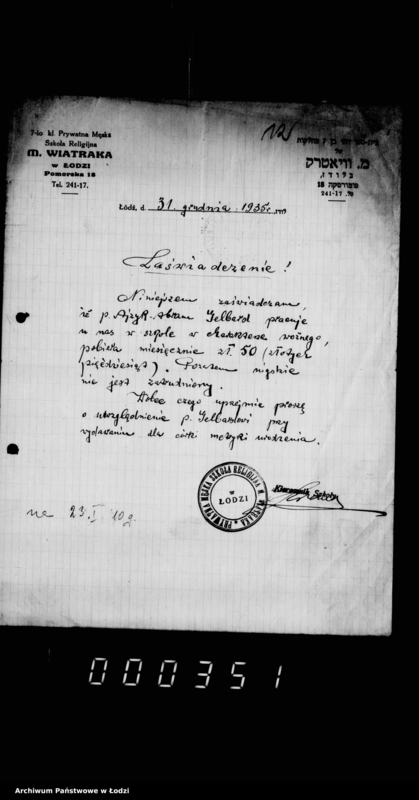 7-io kl. Prywatna Męska
Szkoła Religijna
M. WIATRAKA
w ŁODZI
Pomorska 18
Tel. 241-17.
מ. וויאטרק
בלודז,
פומורסקה 18
טל. 241-17
Łódź, d. 31. grudnia 1935 r.
Zaświadczenie!
Niniejszem zaświadczam,
iż p. Ajzyk-Abram Gelbard pracuje
u nas w szkole w charakterze woźnego,
pobiera miesięcznie zł. 50 (złotych
pięćdziesiąt). Pozatem nigdzie
nie jest zatrudniony.
Wobec czego uprzejmie proszę
o uwzględnienie p. Gelbardowi przy
wydawaniu dla córki metryki urodzenia.
Kierownik Szkoły
PRYWATNA MĘSKA SZKOŁA RELIGIJNA M. WIATRAKA
w
ŁODZI
na 23. I. 10 g.
000351
Archiwum Państwowe w Łodzi